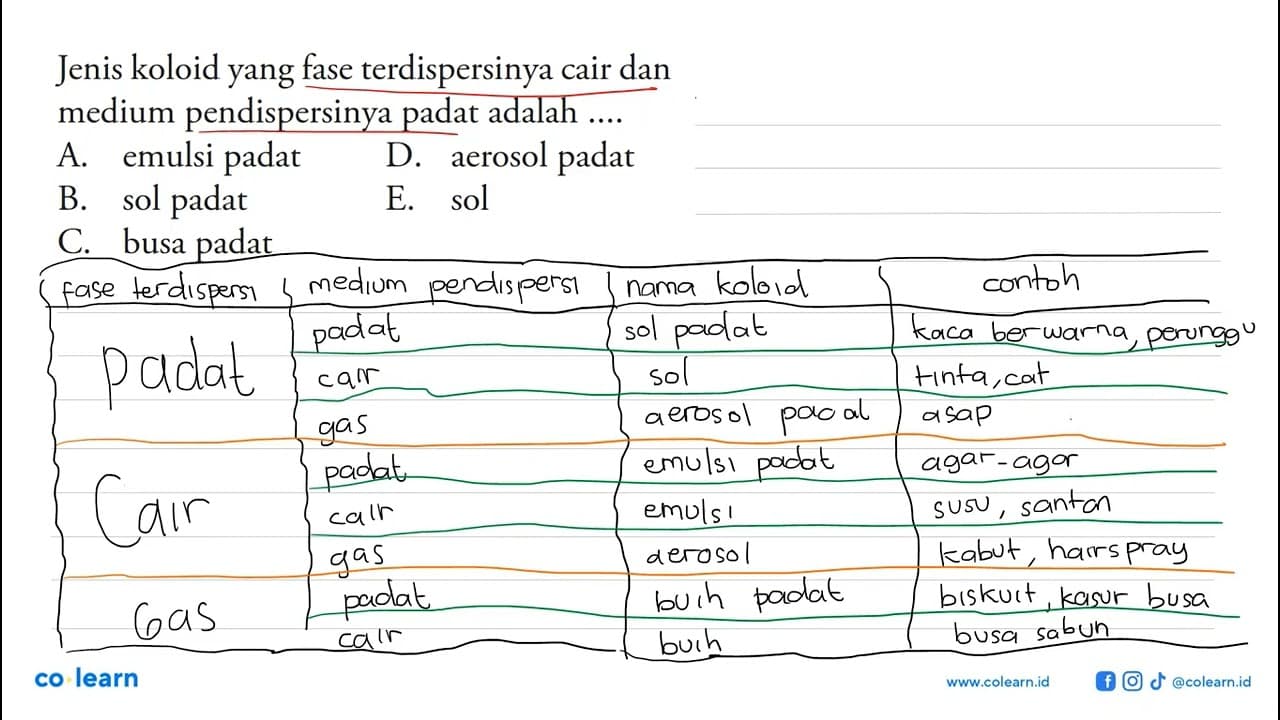 Jenis koloid yang fase terdispersinya cair dan
medium pendispersinya padat adalah ....
A. emulsi padat D. aerosol padat
B. sol padat E. sol
C. busa padat
fase terdispersi medium pendispersi nama koloid contoh
padat sol padat kaca berwarna, perunggu
Padat cair sol tinta, cat
gas aerosol padat asap
padat emulsi padat agar-agar
Cair cair emulsi susu, santan
gas aerosol kabut, hairspray
Gas padat buih padat biskuit, kasur busa
cair buih busa sabun
co learn www.colearn.id @colearn.id